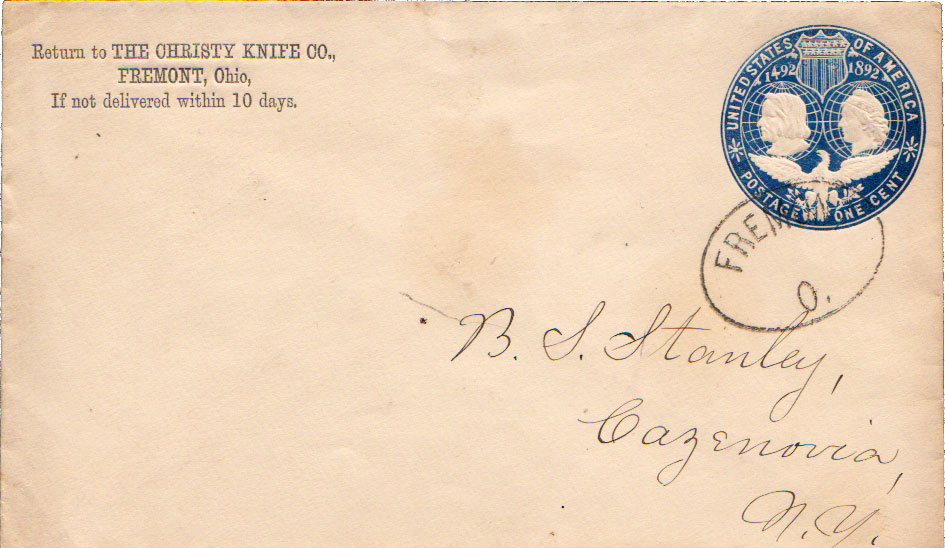 Return to THE CHRISTY KNIFE CO.,
FREMONT, Ohio,
If not delivered within 10 days.
UNITED STATES OF AMERICA
1492 1892
POSTAGE ONE CENT
FREMONT
O.
B. S. Stanley,
Cazenovia,
N.Y.